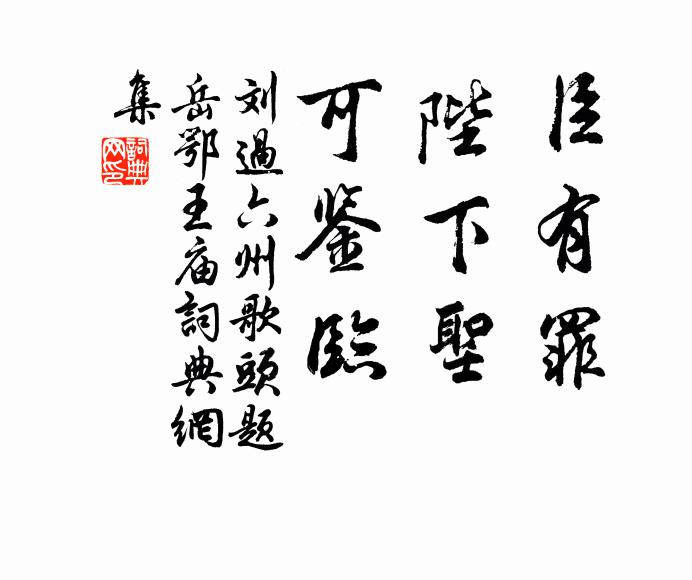 臣有罪
陛下聖
可鉴臨
刘過六州歌頭题
岳鄂王庙詞典網
集
詞典
网印